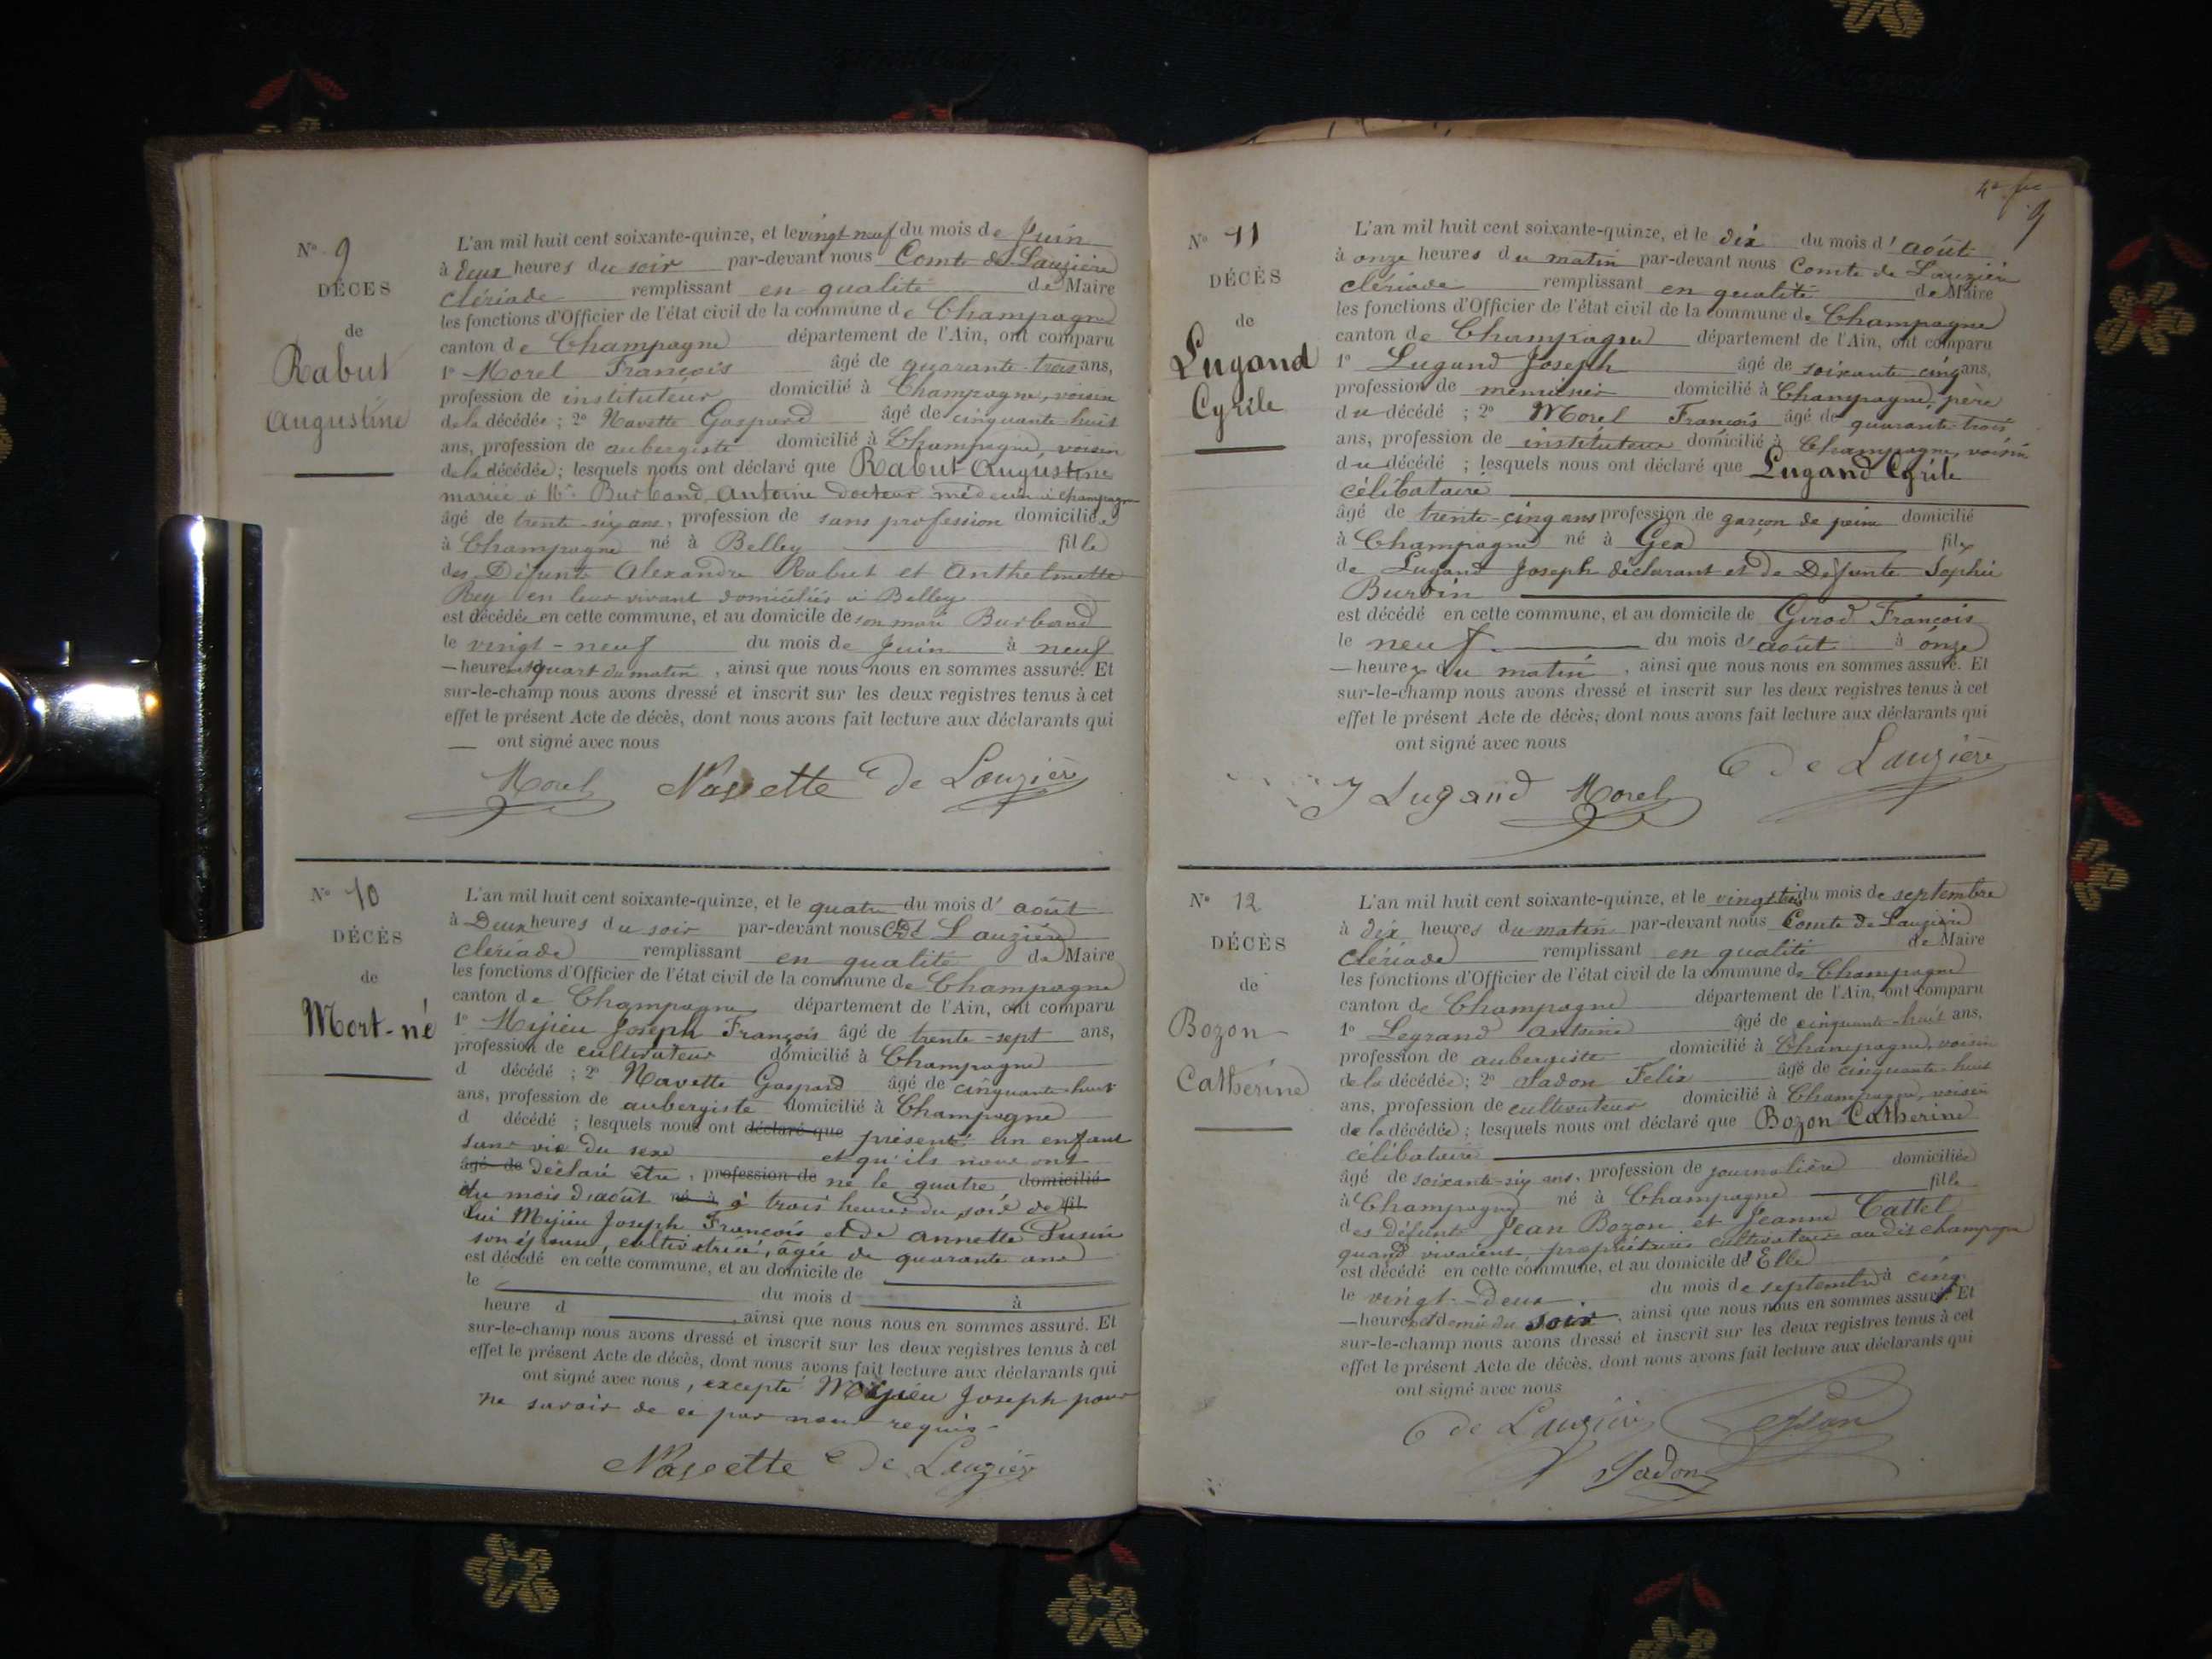 N° 9
DÉCÈS
de
Rabut
Augustine
L'an mil huit cent soixante-quinze, et le vingt neuf du mois de Juin
à deux heures du soir par-devant nous Comte de Lauzière
clériade remplissant en qualité de Maire
les fonctions d'Officier de l'état civil de la commune de Champagne
canton de Champagne département de l'Ain, ont comparu
1° Morel François âgé de quarante-trois ans,
profession de instituteur domicilié à Champagne, voisin
de la décédée ; 2° Navette Gaspard âgé de cinquante huit
ans, profession de aubergiste domicilié à Champagne, voisin
de la décédée ; lesquels nous ont déclaré que Rabut Augustine
mariée à Mr Burband, Antoine docteur médecin à Champagne
âgé de trente-six ans, profession de sans profession domiciliée
à Champagne né à Belley fille
des Défunts Alexandre Rabut et Anthelmette
Rey en leur vivant domiciliés à Belley
est décédée en cette commune, et au domicile de son mari Burband
le vingt-neuf du mois de Juin à neuf
heures quart du matin, ainsi que nous nous en sommes assuré. Et
sur-le-champ nous avons dressé et inscrit sur les deux registres tenus à cet
effet le présent Acte de décès, dont nous avons fait lecture aux déclarants qui
ont signé avec nous
Morel Navette C de Lauzière
N° 10
DÉCÈS
de
Mort-né
L'an mil huit cent soixante-quinze, et le quatre du mois d'août
à Deux heures du soir par-devant nous Cte de Lauzière
clériade remplissant en qualité de Maire
les fonctions d'Officier de l'état civil de la commune de Champagne
canton de Champagne département de l'Ain, ont comparu
1° Mijieu Joseph François âgé de trente-sept ans,
profession de cultivateur domicilié à Champagne
d décédé ; 2° Navette Gaspard âgé de cinquante-huit
ans, profession de aubergiste domicilié à Champagne
d décédé ; lesquels nous ont déclaré que présenté un enfant
sans vie du sexe et qu'ils nous ont
âgé de déclaré être, profession de né le quatre domicilié
du mois d'août né à à trois heures du soir de fil
lui Mijieu Joseph François et de Annette Susin
son épouse, cultivatrice, âgée de quarante ans
est décédé en cette commune, et au domicile de
le du mois d à
heure d , ainsi que nous nous en sommes assuré. Et
sur-le-champ nous avons dressé et inscrit sur les deux registres tenus à cet
effet le présent Acte de décès, dont nous avons fait lecture aux déclarants qui
ont signé avec nous, excepté Mijieu Joseph pour
ne savoir de ce par nous requis.
Navette C de Lauzière
9
N° 11
DÉCÈS
de
Lugand
Cyrile
L'an mil huit cent soixante-quinze, et le dix du mois d'août
à onze heures du matin par-devant nous Comte de Lauzière
clériade remplissant en qualité de Maire
les fonctions d'Officier de l'état civil de la commune de Champagne
canton de Champagne département de l'Ain, ont comparu
1° Lugand Joseph âgé de soixante cinq ans,
profession de menuisier domicilié à Champagne, père
du décédé ; 2° Morel François âgé de quarante-trois
ans, profession de instituteur domicilié à Champagne, voisin
du décédé ; lesquels nous ont déclaré que Lugand Cyrile
célibataire
âgé de trente-cinq ans profession de garçon de peine domicilié
à Champagne né à Gex fils
de Lugand Joseph déclarant et de Défunte Sophie
Burdin
est décédé en cette commune, et au domicile de Girod François
le neuf du mois d'août à onze
heures du matin, ainsi que nous nous en sommes assuré. Et
sur-le-champ nous avons dressé et inscrit sur les deux registres tenus à cet
effet le présent Acte de décès, dont nous avons fait lecture aux déclarants qui
ont signé avec nous
J Lugand Morel C de Lauzière
N° 12
DÉCÈS
de
Bozon
Catherine
L'an mil huit cent soixante-quinze, et le vingt trois du mois de septembre
à dix heures du matin par-devant nous Comte de Lauzière
clériade remplissant en qualité de Maire
les fonctions d'Officier de l'état civil de la commune de Champagne
canton de Champagne département de l'Ain, ont comparu
1° Legrand Antoine âgé de cinquante-huit ans,
profession de aubergiste domicilié à Champagne, voisin
de la décédée ; 2° Sadon Felix âgé de cinquante-huit
ans, profession de cultivateur domicilié à Champagne, voisin
de la décédée ; lesquels nous ont déclaré que Bozon Catherine
célibataire
âgé de soixante-six ans, profession de journalière domiciliée
à Champagne né à Champagne fille
des défunts Jean Bozon et Jeanne Cattel
quand vivaient, propriétaires cultivateurs au dit champagne
est décédé en cette commune, et au domicile de Elle
le vingt-deux du mois de septembre à cinq
heures et demie du soir, ainsi que nous nous en sommes assuré. Et
sur-le-champ nous avons dressé et inscrit sur les deux registres tenus à cet
effet le présent Acte de décès, dont nous avons fait lecture aux déclarants qui
ont signé avec nous
C de Lauzière
Sadon